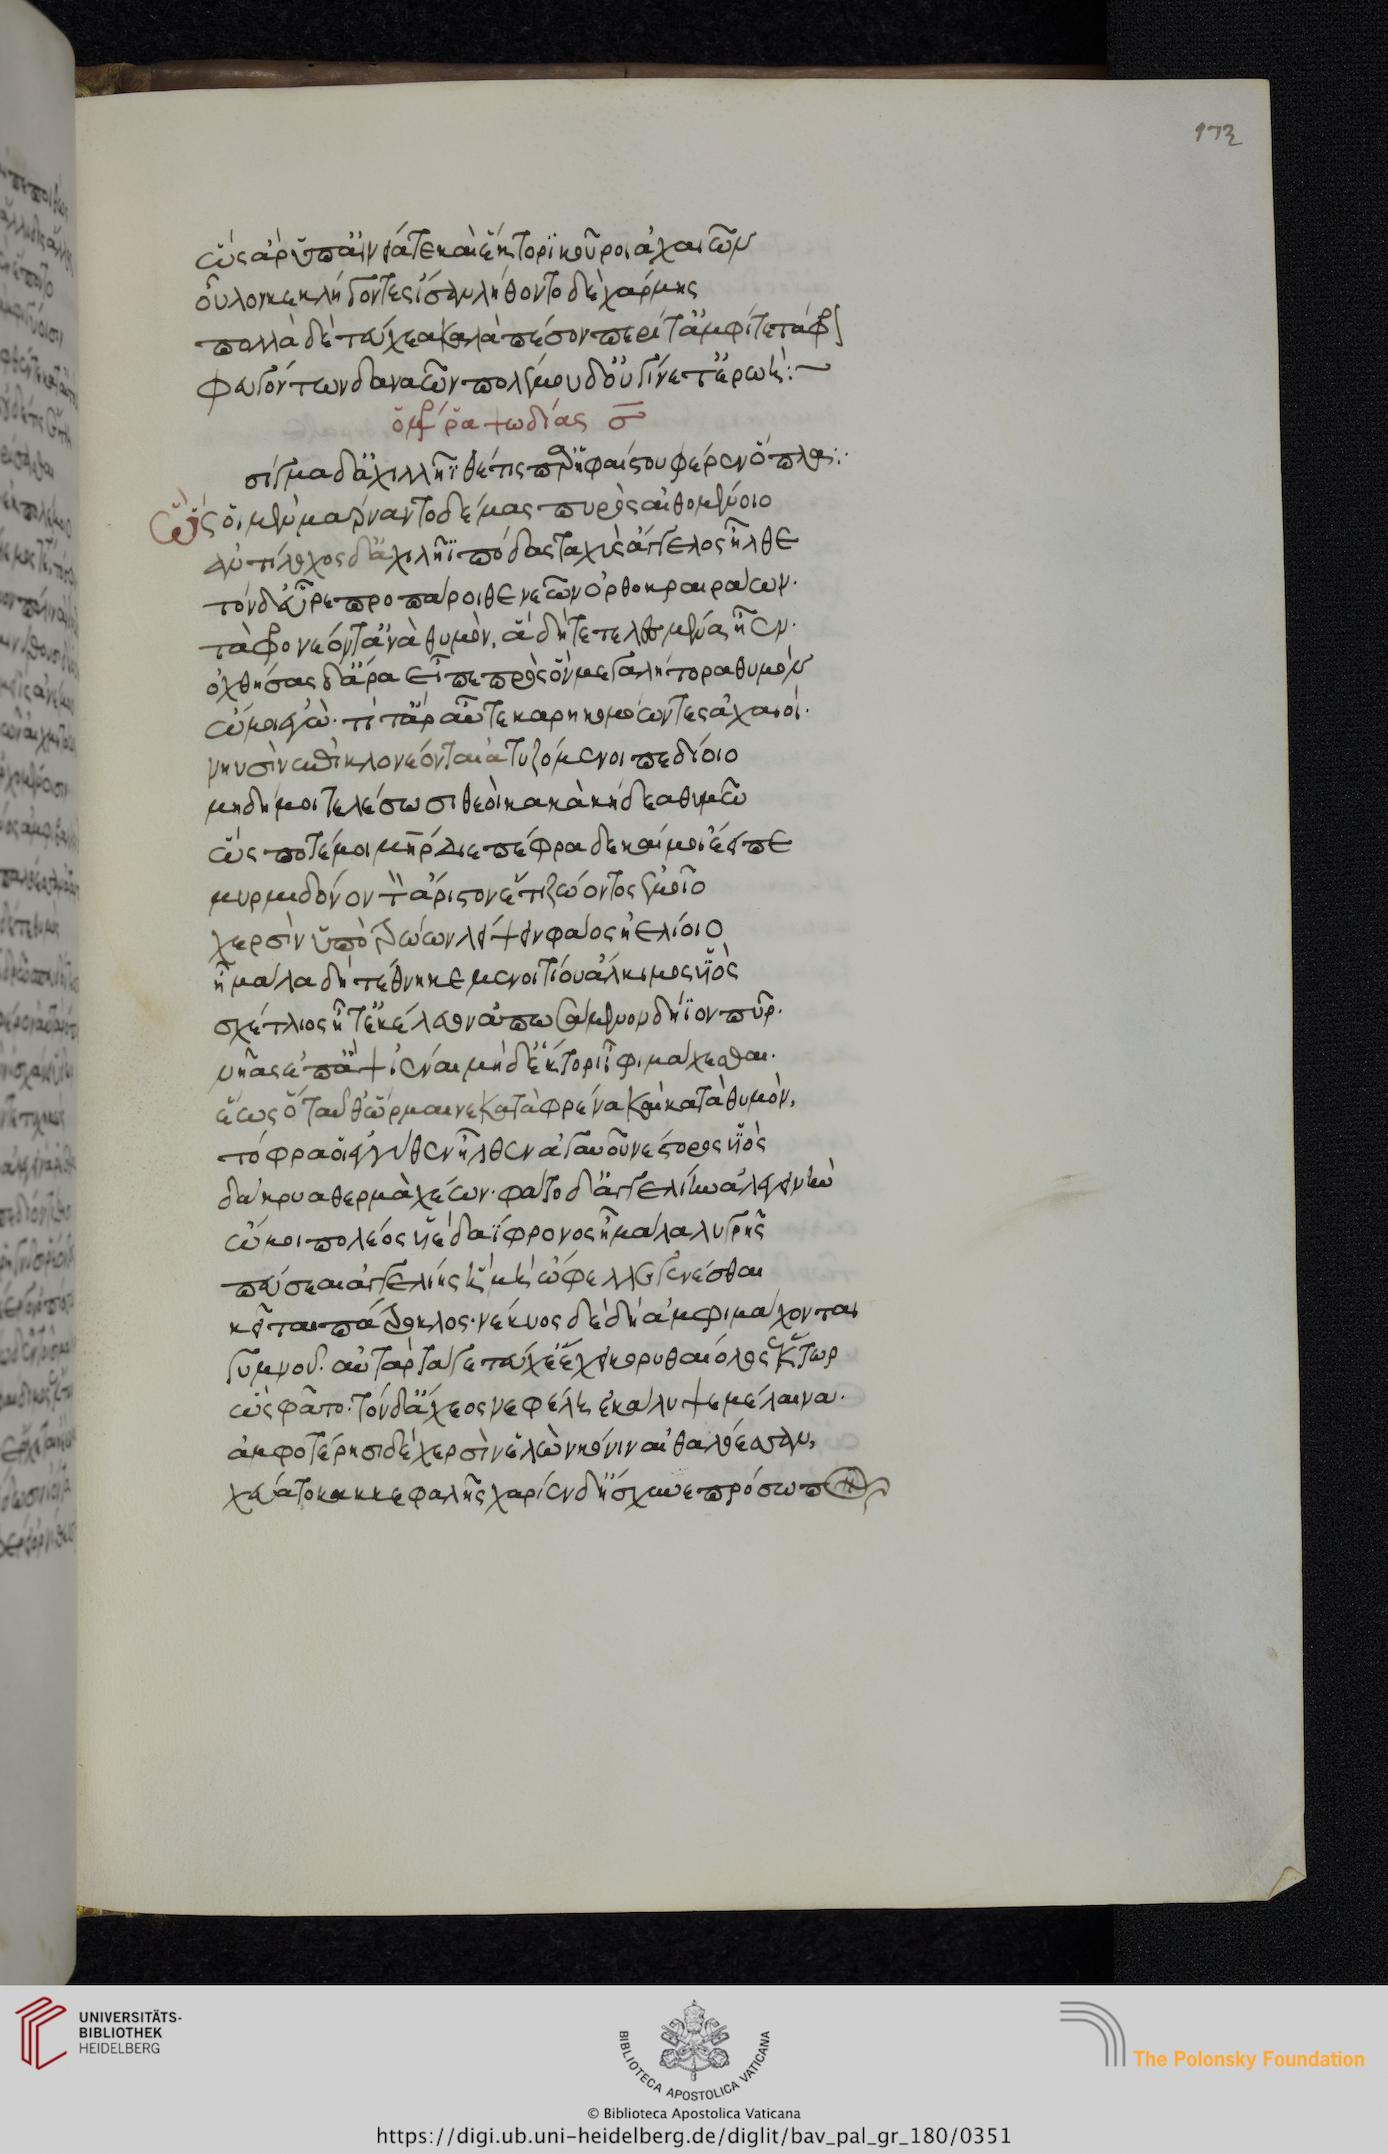 173
ὣς ἄρ' ὑπ' Αἰνείᾳ τε καὶ Ἕκτορι κοῦροι ἀχαιῶν
οὖλον κεκλήγοντες ἴσαν λήθοντο δὲ χάρμης
πολλὰ δὲ τεύχεα καλὰ πέσον περί τ' ἀμφί τε τάφρον
φευγόντων δαναῶν πολέμου δ' οὐ γίνετ' ἐρωή:~
ὁμήρου ῥαψωδίας σ
σίγμα δ' ἀχιλλῆϊ θέτις παρ' ἡφαίστου φέρεν ὅπλα:·
Ὣς οἱ μὲν μάρναντο δέμας πυρὸς αἰθομένοιο
ἀντίλοχος δ' ἀχιλῆϊ πόδας ταχὺς ἄγγελος ἦλθε
τὸν δ' εὗρε προπάροιθε νεῶν ὀρθοκραιράων.
τὰ φρονέοντ' ἀνὰ θυμὸν, ἃ δὴ τετελεσμένα ἦεν.
ὀχθήσας δ' ἄρα εἶπε πρὸς ὃν μεγαλήτορα θυμόν
ὤμοι ἐγώ. τί τ' ἄρ αὖτε καρηκομόωντες ἀχαιοί.
νηυσὶν ἐπὶ κλονέονται ἀτυζόμενοι πεδίοιο
μὴ δή μοι τελέσωσι θεοὶ κακὰ κήδεα θυμῶ
ὥς ποτέ μοι μήτηρ διεπέφραδε καί μοι ἔειπε
μυρμιδόνων τὸν ἄριστον ἔτι ζώοντος ἐμοῖο
χερσὶν ὑπὸ τρώων λείψειν φάος ἠελίοιο
ἦ μάλα δὴ τέθνηκε μενοιτίου ἄλκιμος υἱὸς
σχέτλιος ἦ τ' ἐκέλευον ἀπωσάμενον δήϊον πῦρ.
νῆας ἐπ' ἂψ ἰέναι μὴ δ' ἕκτορι ἶφι μάχεσθαι.
ἕως ὃ ταῦθ' ὥρμαινε κατὰ φρένα καὶ κατὰ θυμὸν,
τόφρα οἱ ἐγγύθεν ἦλθεν ἀγαυοῦ νέστορος υἱὸς
δάκρυα θερμὰ χέων. φάτο δ' ἀγγελίην ἀλεγεινὴν
ὤμοι πηλέος υἱὲ δαΐφρονος ἦ μάλα λυγρῆς
πεύσεαι ἀγγελίης ἣ μὴ ὤφελλε γενέσθαι
κεῖται πάτροκλος. νέκυος δὲ δὴ ἀμφιμάχονται
γυμνοῦ. αὐτὰρ τά γε τεύχε' ἔχει κορυθαιόλος ἕκτωρ
ὣς φάτο. τὸν δ' ἄχεος νεφέλη ἐκάλυψε μέλαινα.
ἀμφοτέρησι δὲ χερσὶν ἑλὼν κόνιν αἰθαλόεσσαν,
χεύατο κακ κεφαλῆς χαρίεν δ' ἤσχυνε πρόσωπον
UNIVERSITÄTS-
BIBLIOTHEK
HEIDELBERG
BIBLIOTECA APOSTOLICA VATICANA
The Polonsky Foundation
© Biblioteca Apostolica Vaticana
https://digi.ub.uni-heidelberg.de/diglit/bav_pal_gr_180/0351